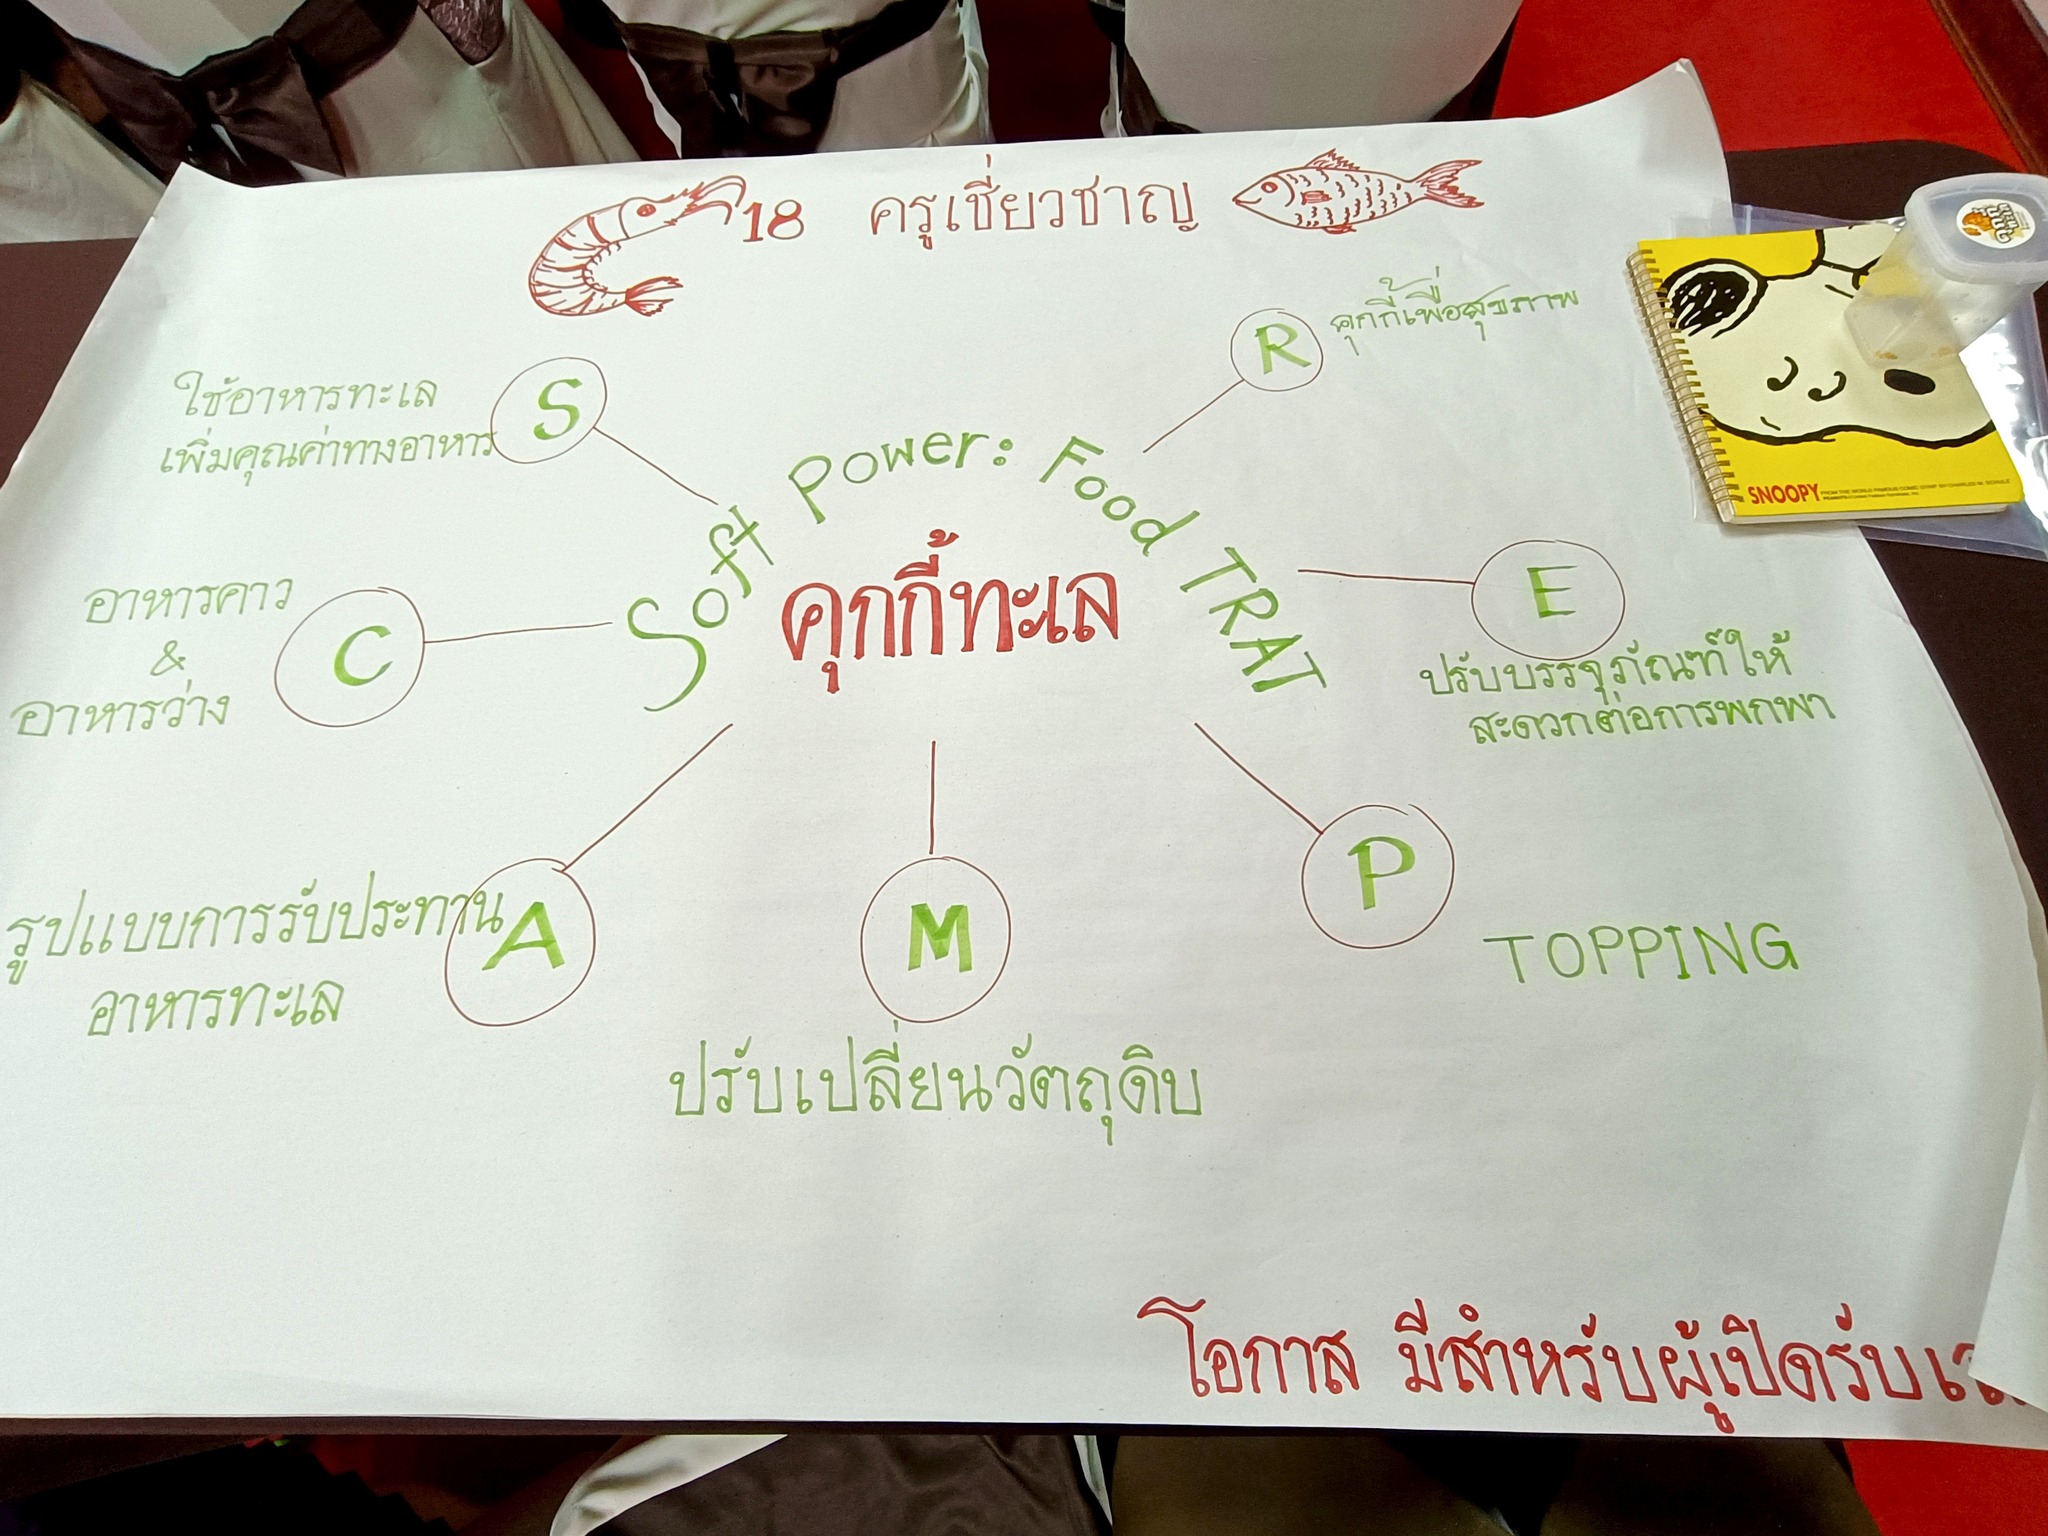 18 ครูเชี่ยวชาญ
R
คุกกี้เพื่อสุขภาพ
S
ใช้อาหารทะเล
เพิ่มคุณค่าทางอาหาร
Soft Power: Food TRAT
คุกกี้ทะเล
E
ปรับบรรจุภัณฑ์ให้
สะดวกต่อการพกพา
C
อาหารคาว
&
อาหารว่าง
A
รูปแบบการรับประทาน
อาหารทะเล
M
ปรับเปลี่ยนวัตถุดิบ
P
TOPPING
โอกาส มีสำหรับผู้เปิดรับ
SNOOPY